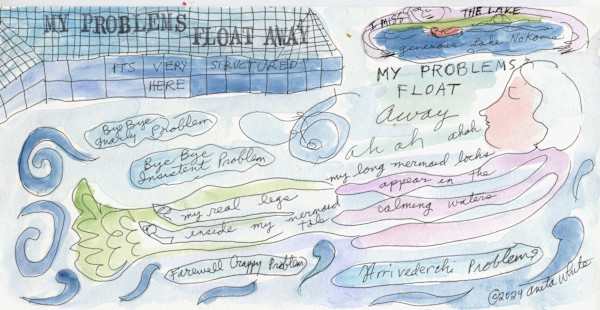 MY PROBLEMS
FLOAT AWAY
ITS VERY STRUCTURED
HERE
I MISS
THE LAKE
generous Lake Nokomis
MY PROBLEMS
FLOAT
away
ah ah ahah
my long mermaid locks
appear in the
calming waters
Bye Bye
Gnarly Problem
Bye Bye
Insistent Problem
my real legs
inside my mermaid
tale
Farewell Crappy Problem
Arrivederchi Problems
©2024 Anita White